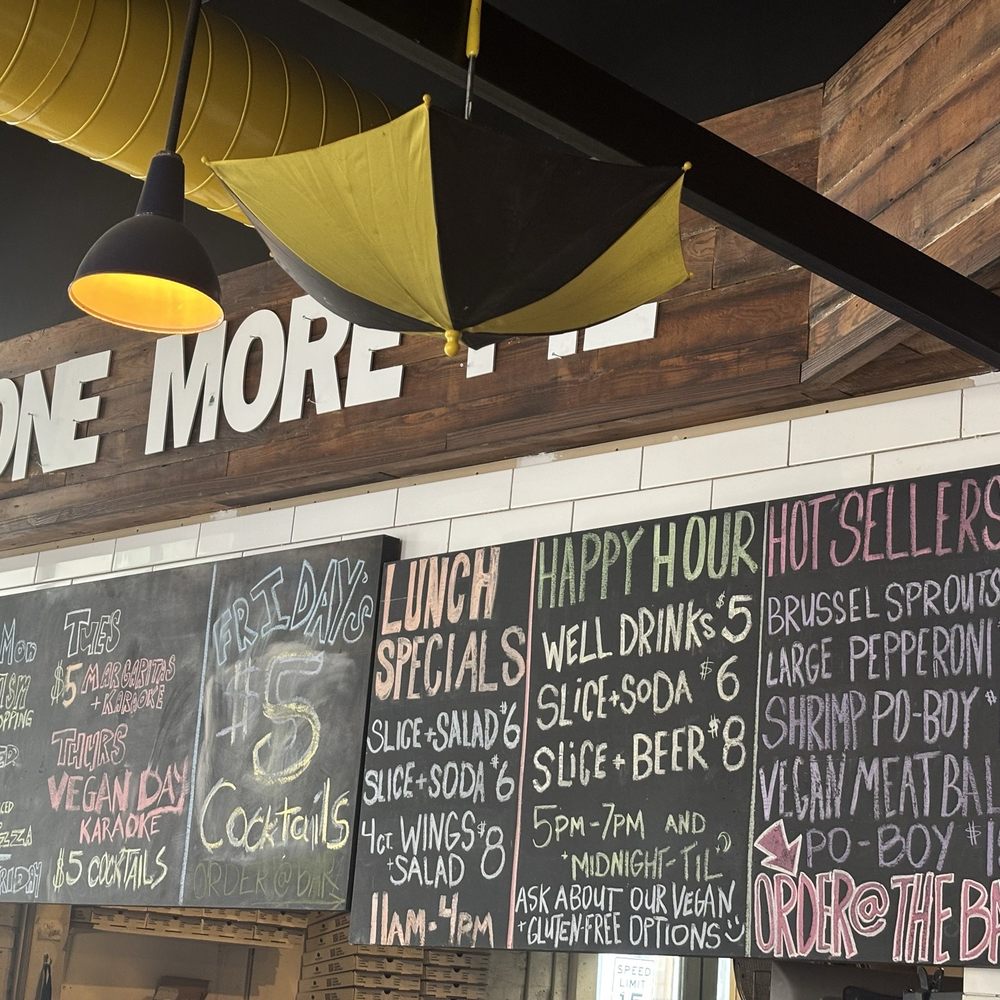 ONE MORE
MON
TUES
$5 MARGARITAS
+ KARAOKE
THURS
VEGAN DAY
KARAOKE
$5 COCKTAILS
FRIDAY
FRIDAY'S
$5
Cocktails
ORDER @ BAR
LUNCH
SPECIALS
SLICE+SALAD $6
SLICE+SODA $6
4CT. WINGS $8
+SALAD
11AM-4PM
HAPPY HOUR
WELL DRINKS $5
SLICE+SODA $6
SLICE+BEER $8
5PM-7PM AND
MIDNIGHT-TIL
ASK ABOUT OUR VEGAN
+GLUTEN-FREE OPTIONS
HOT SELLERS
BRUSSEL SPROUTS
LARGE PEPPERONI
SHRIMP PO-BOY $
VEGAN MEATBAL
PO-BOY $1
ORDER@THE BA
SPEED
LIMIT
15